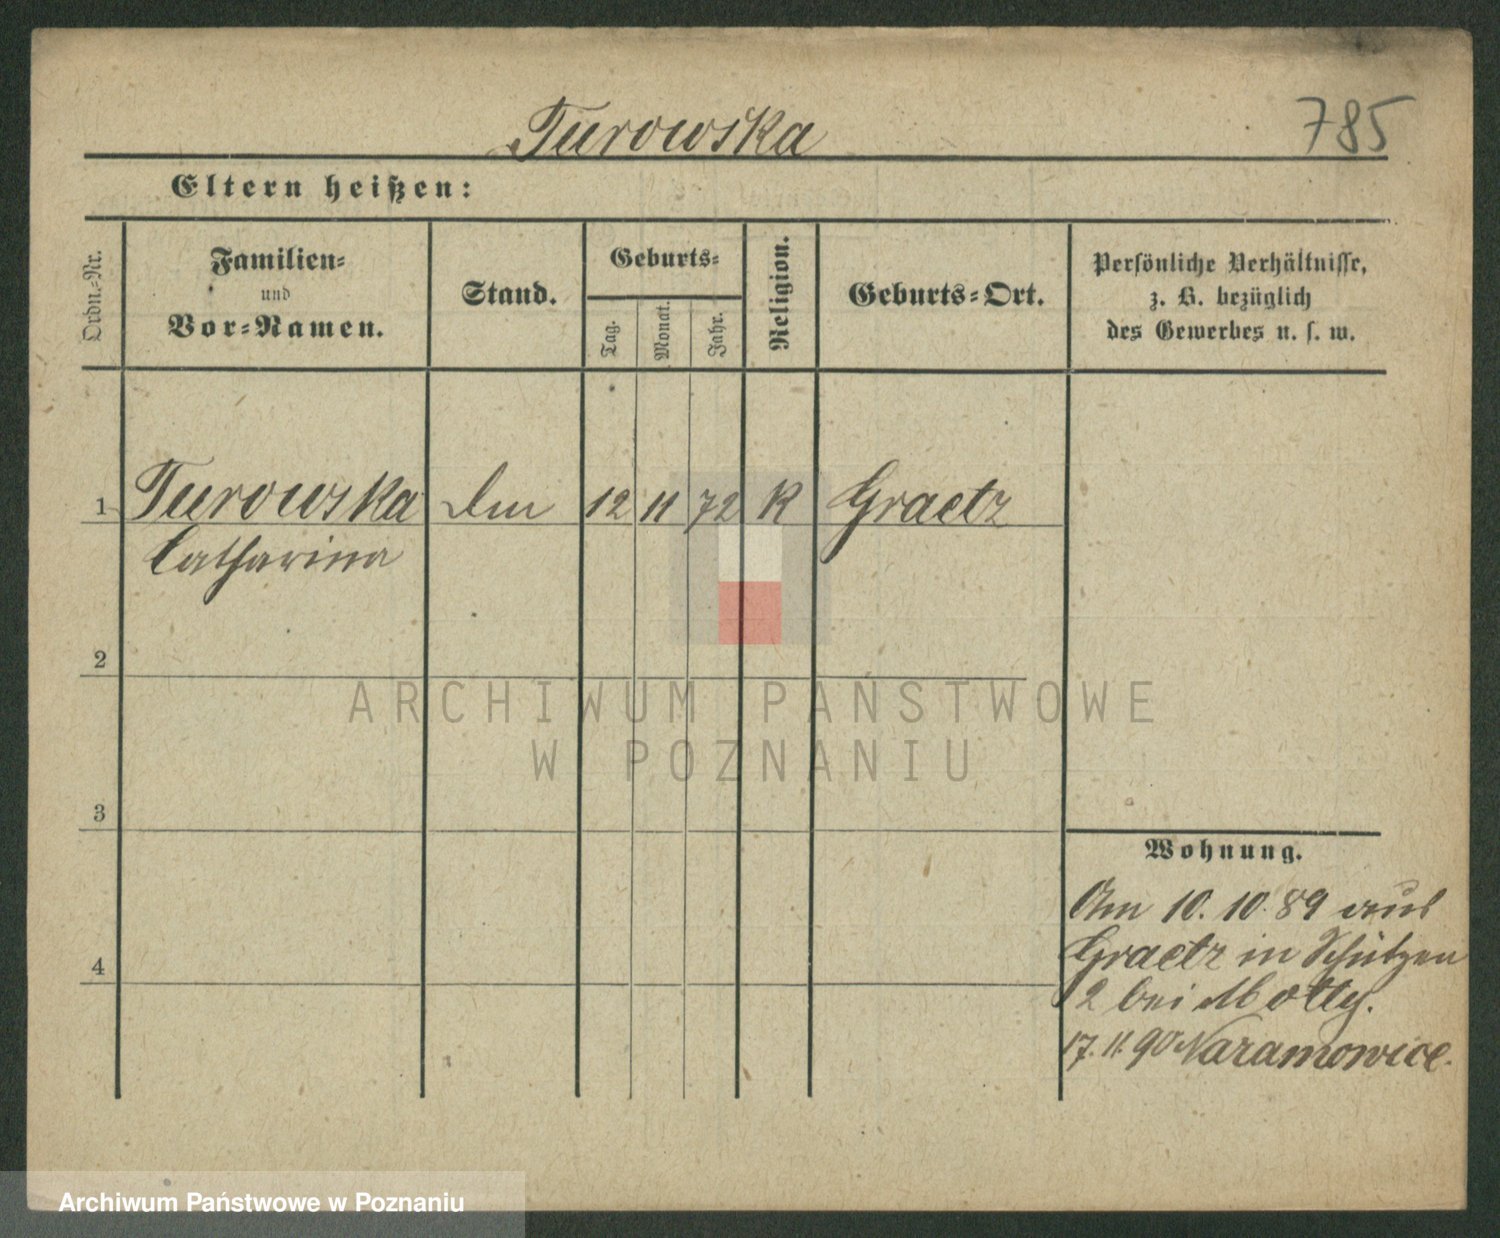 Turowska 785
Eltern heißen:
Ordn.-Nr.
Familien-
und
Vor-Namen.
Stand.
Geburts-
Tag.
Monat.
Jahr.
Religion.
Geburts-Ort.
Persönliche Verhältnisse,
z. B. bezüglich
des Gewerbes u. s. w.
1 Turowska 12 11 72 K Graetz
Catharina
2
3
4
Wohnung.
Am 10. 10. 89 aus
Graetz in Schützen
2 bei Motty.
17. 11. 90 Naramowice.
ARCHIWUM PAŃSTWOWE
W POZNANIU
Archiwum Państwowe w Poznaniu